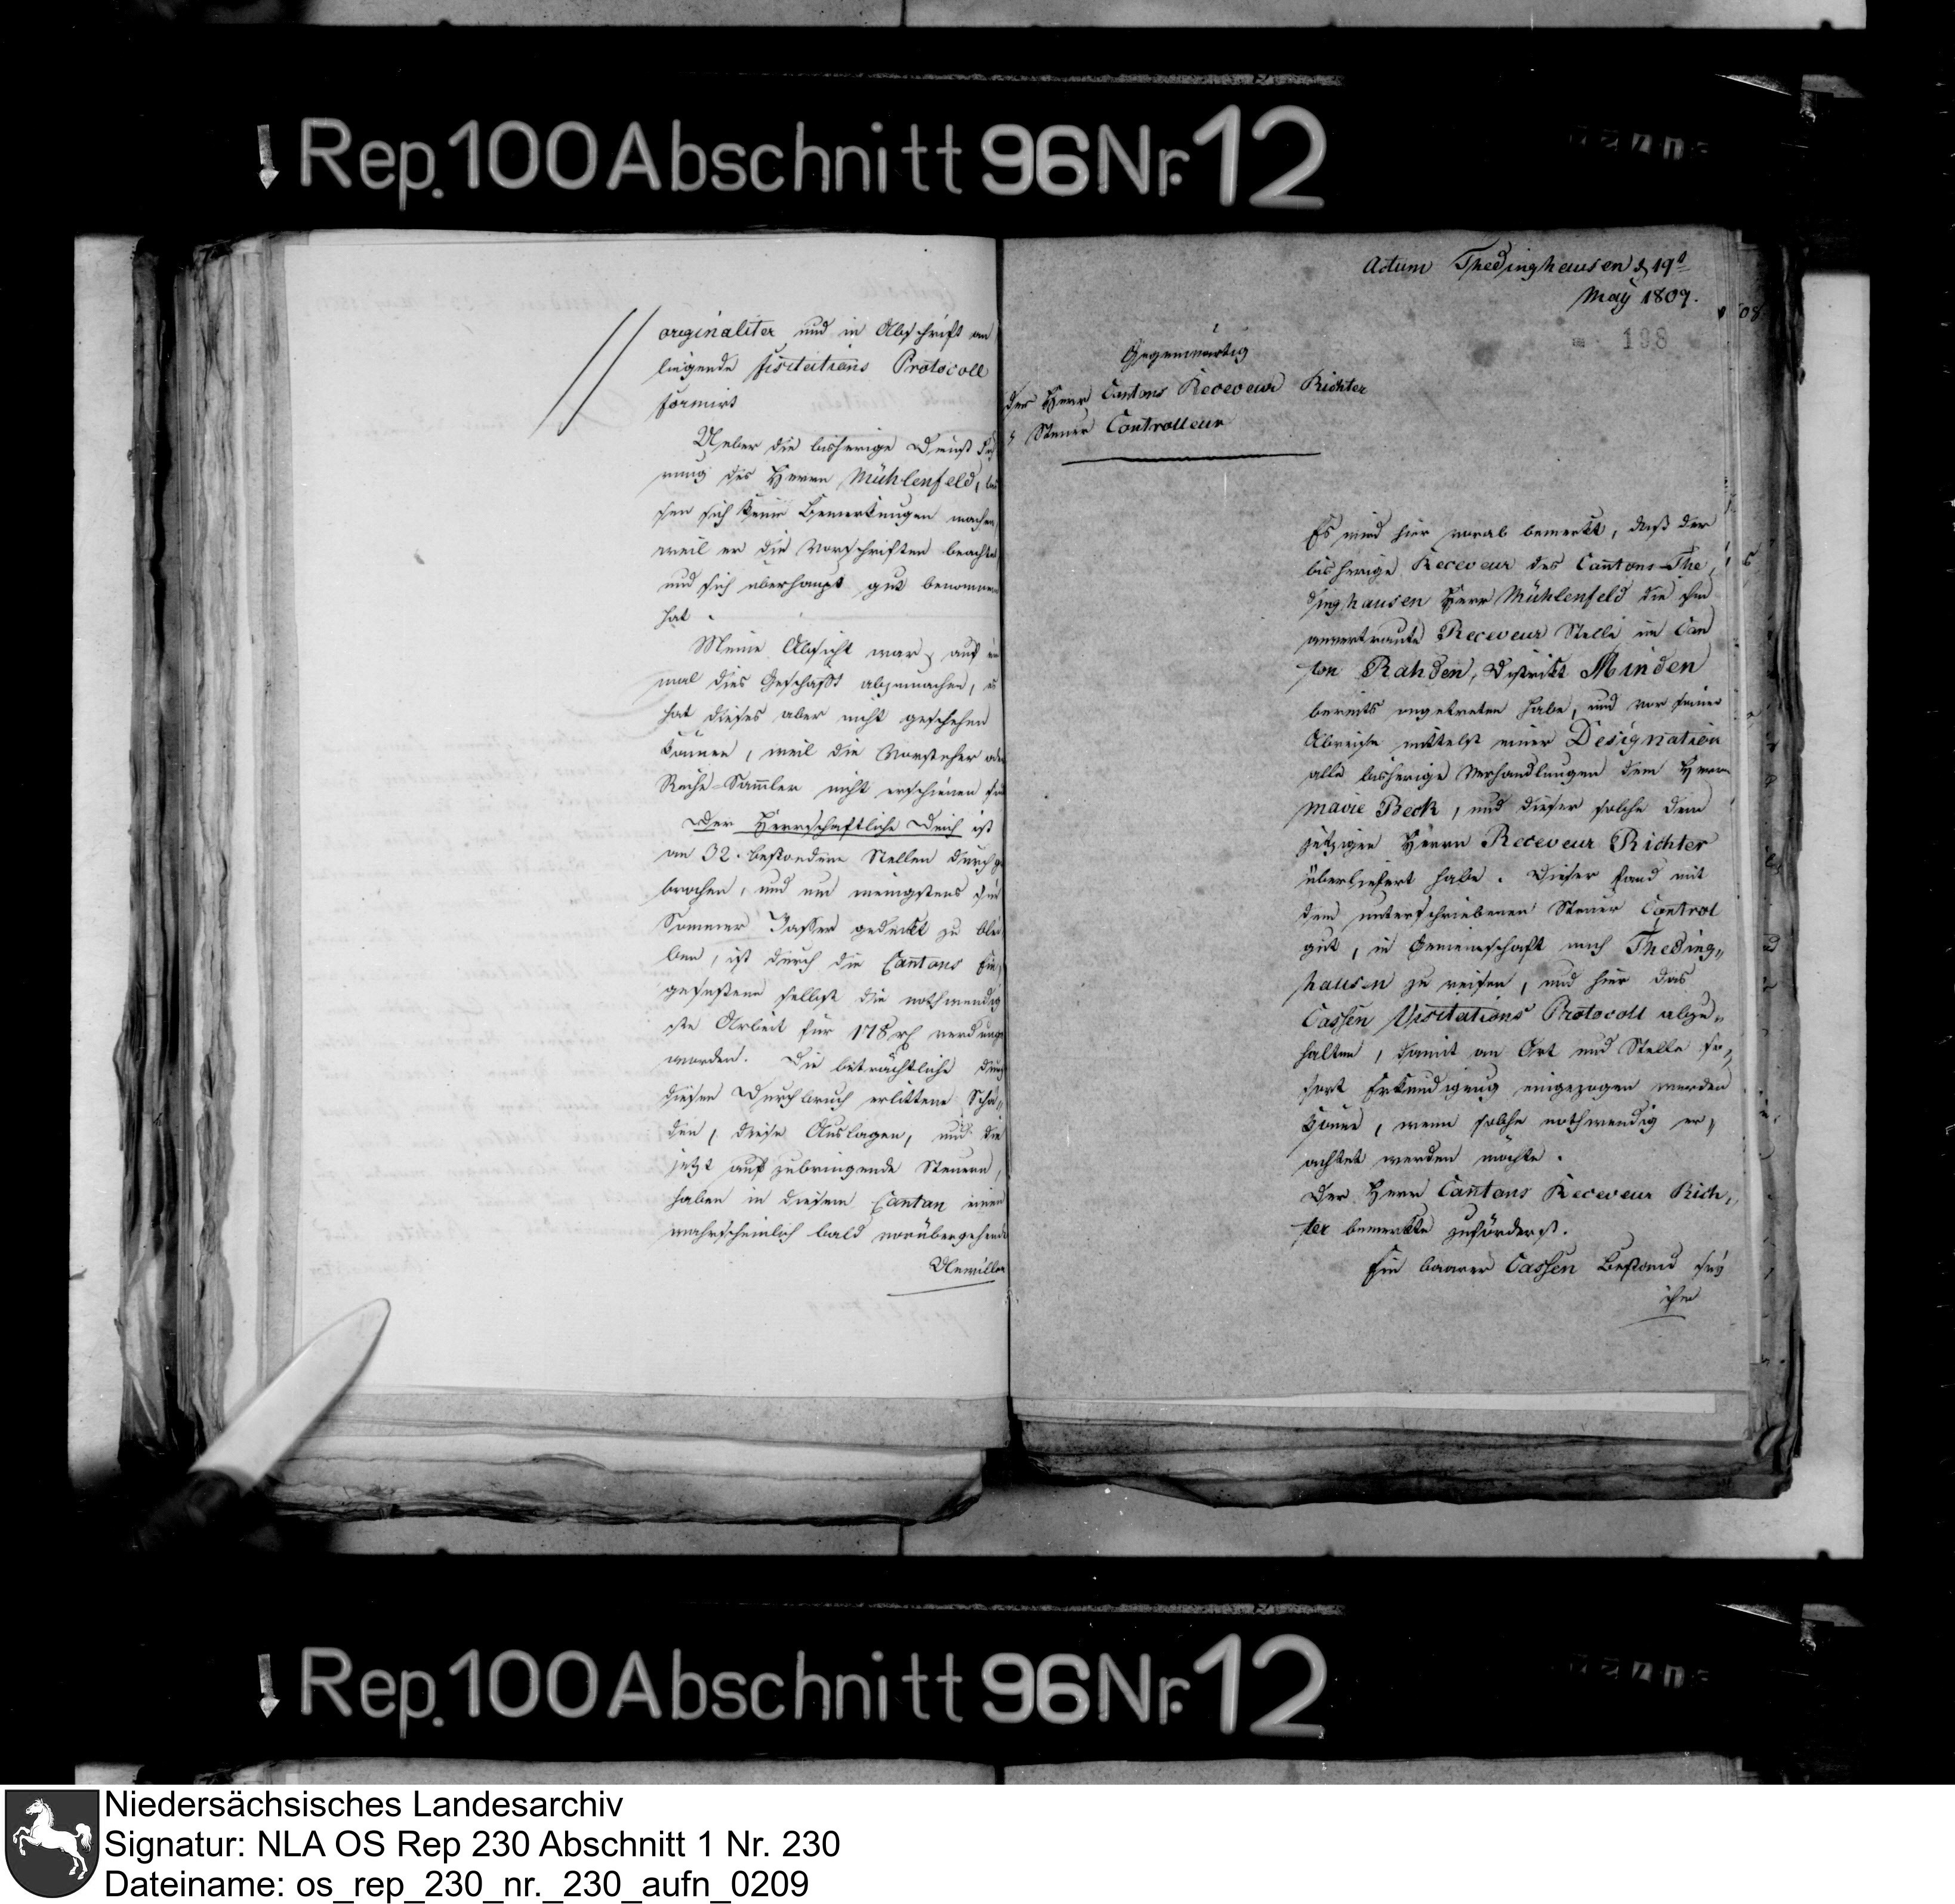 Rep. 100 Abschnitt 96 Nr. 12
originaliter und in Abschrift an
liegende Visitations Protocoll
formirt
Ueber die bisherige Dienst Füh
rung des Herrn Mühlenfeld, las
sen sich keine Bemerkungen machen,
weil er die Vorschriften beachtet
und sich überhaupt gut benommen
hat.
Meine Absicht war, auf ein
mal dies Geschäft abzumachen, es
hat dieses aber nicht geschehen
können, weil die Vorsteher oder
Reihe-Sammler nicht erschienen sind
Der Herrschaftliche Deich ist
an 32. Stellen durchge
brochen, und um wenigstens für
Sommer Wasser gedeckt zu blei
ben, ist durch die Cantons Ein
gesessene selbst die nothwendig
ste Arbeit für 178 rh verdungen
worden. Die beträchtliche durch
diesen Durchbruch erlittene Schä„
den, diese Auslagen, und die
jetzt aufzubringende Steuern,
haben in diesem Canton einen
wahrscheinlich bald vorübergehenden
Unwillen
Actum Thedinghausen d 19t
May 1809.
198
Gegenwärtig
der Herr Cantons Receveur Richter
Steuer Controlleur
Es wird hier vorab bemerkt, daß der
bisherige Receveur des Cantons The,
dinghausen Herr Mühlenfeld die ihm
anvertraute Receveur Stelle im Can
ton Rahden, District Minden
bereits angetreten habe, und vor seiner
Abreise mittelst einer Designation
alle bisherige Verhandlungen dem Herrn
Maire Beck, und dieser solche dem
jetzigen Herrn Receveur Richter
überliefert habe. Dieser fand mit
dem unterschriebenen Steuer Control
gut, in Gemeinschaft nach Theding„
hausen zu reisen, und hier das
Cassen Visitations Protocoll abzu„
halten, damit an Ort und Stelle so„
fort Erkundigung eingezogen werden
könne, wenn solche nothwendig er„
achtet werden möchte.
Der Herr Cantons Receveur Rich,
ter bemerkte zuförderst.
Ein baarer Cassen Bestand sey
ihm
Rep. 100 Abschnitt 96 Nr. 12
Niedersächsisches Landesarchiv
Signatur: NLA OS Rep 230 Abschnitt 1 Nr. 230
Dateiname: os_rep_230_nr._230_aufn_0209